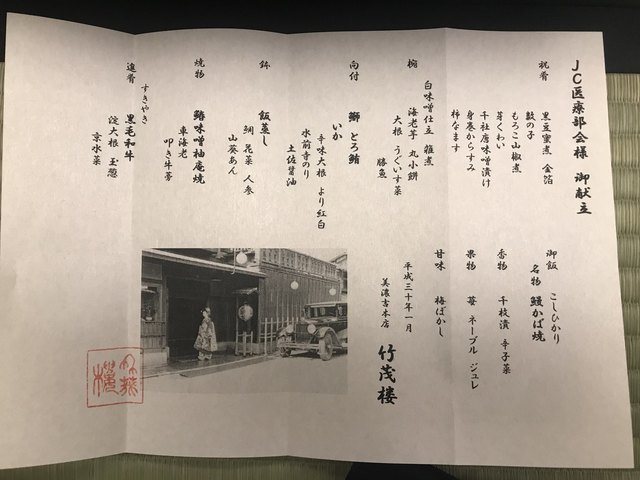 JC医療部会様 御献立
祝肴
黒豆蜜煮 金箔
数の子
もろこ山椒煮
芽くわい
千社唐味噌漬け
身巻からすみ
柿なます
椀
白味噌仕立 雑煮
海老芋 丸小餅
大根 うぐいす菜
勝魚
向付
鰤 とろ鮪
いか
辛味大根 より紅白
水前寺のり
土佐醤油
鉢
飯蒸し
鯛 花菜 人参
山葵あん
焼物
鰆味噌柚庵焼
車海老
叩き牛蒡
進肴
すきやき
黒毛和牛
淀大根 玉葱
京水菜
御飯
こしひかり
名物 鰻かば焼
香物
千枚漬 辛子菜
果物
苺 ネーブル ジュレ
甘味
梅ばかし
平成三十年一月
美濃吉本店
竹茂楼